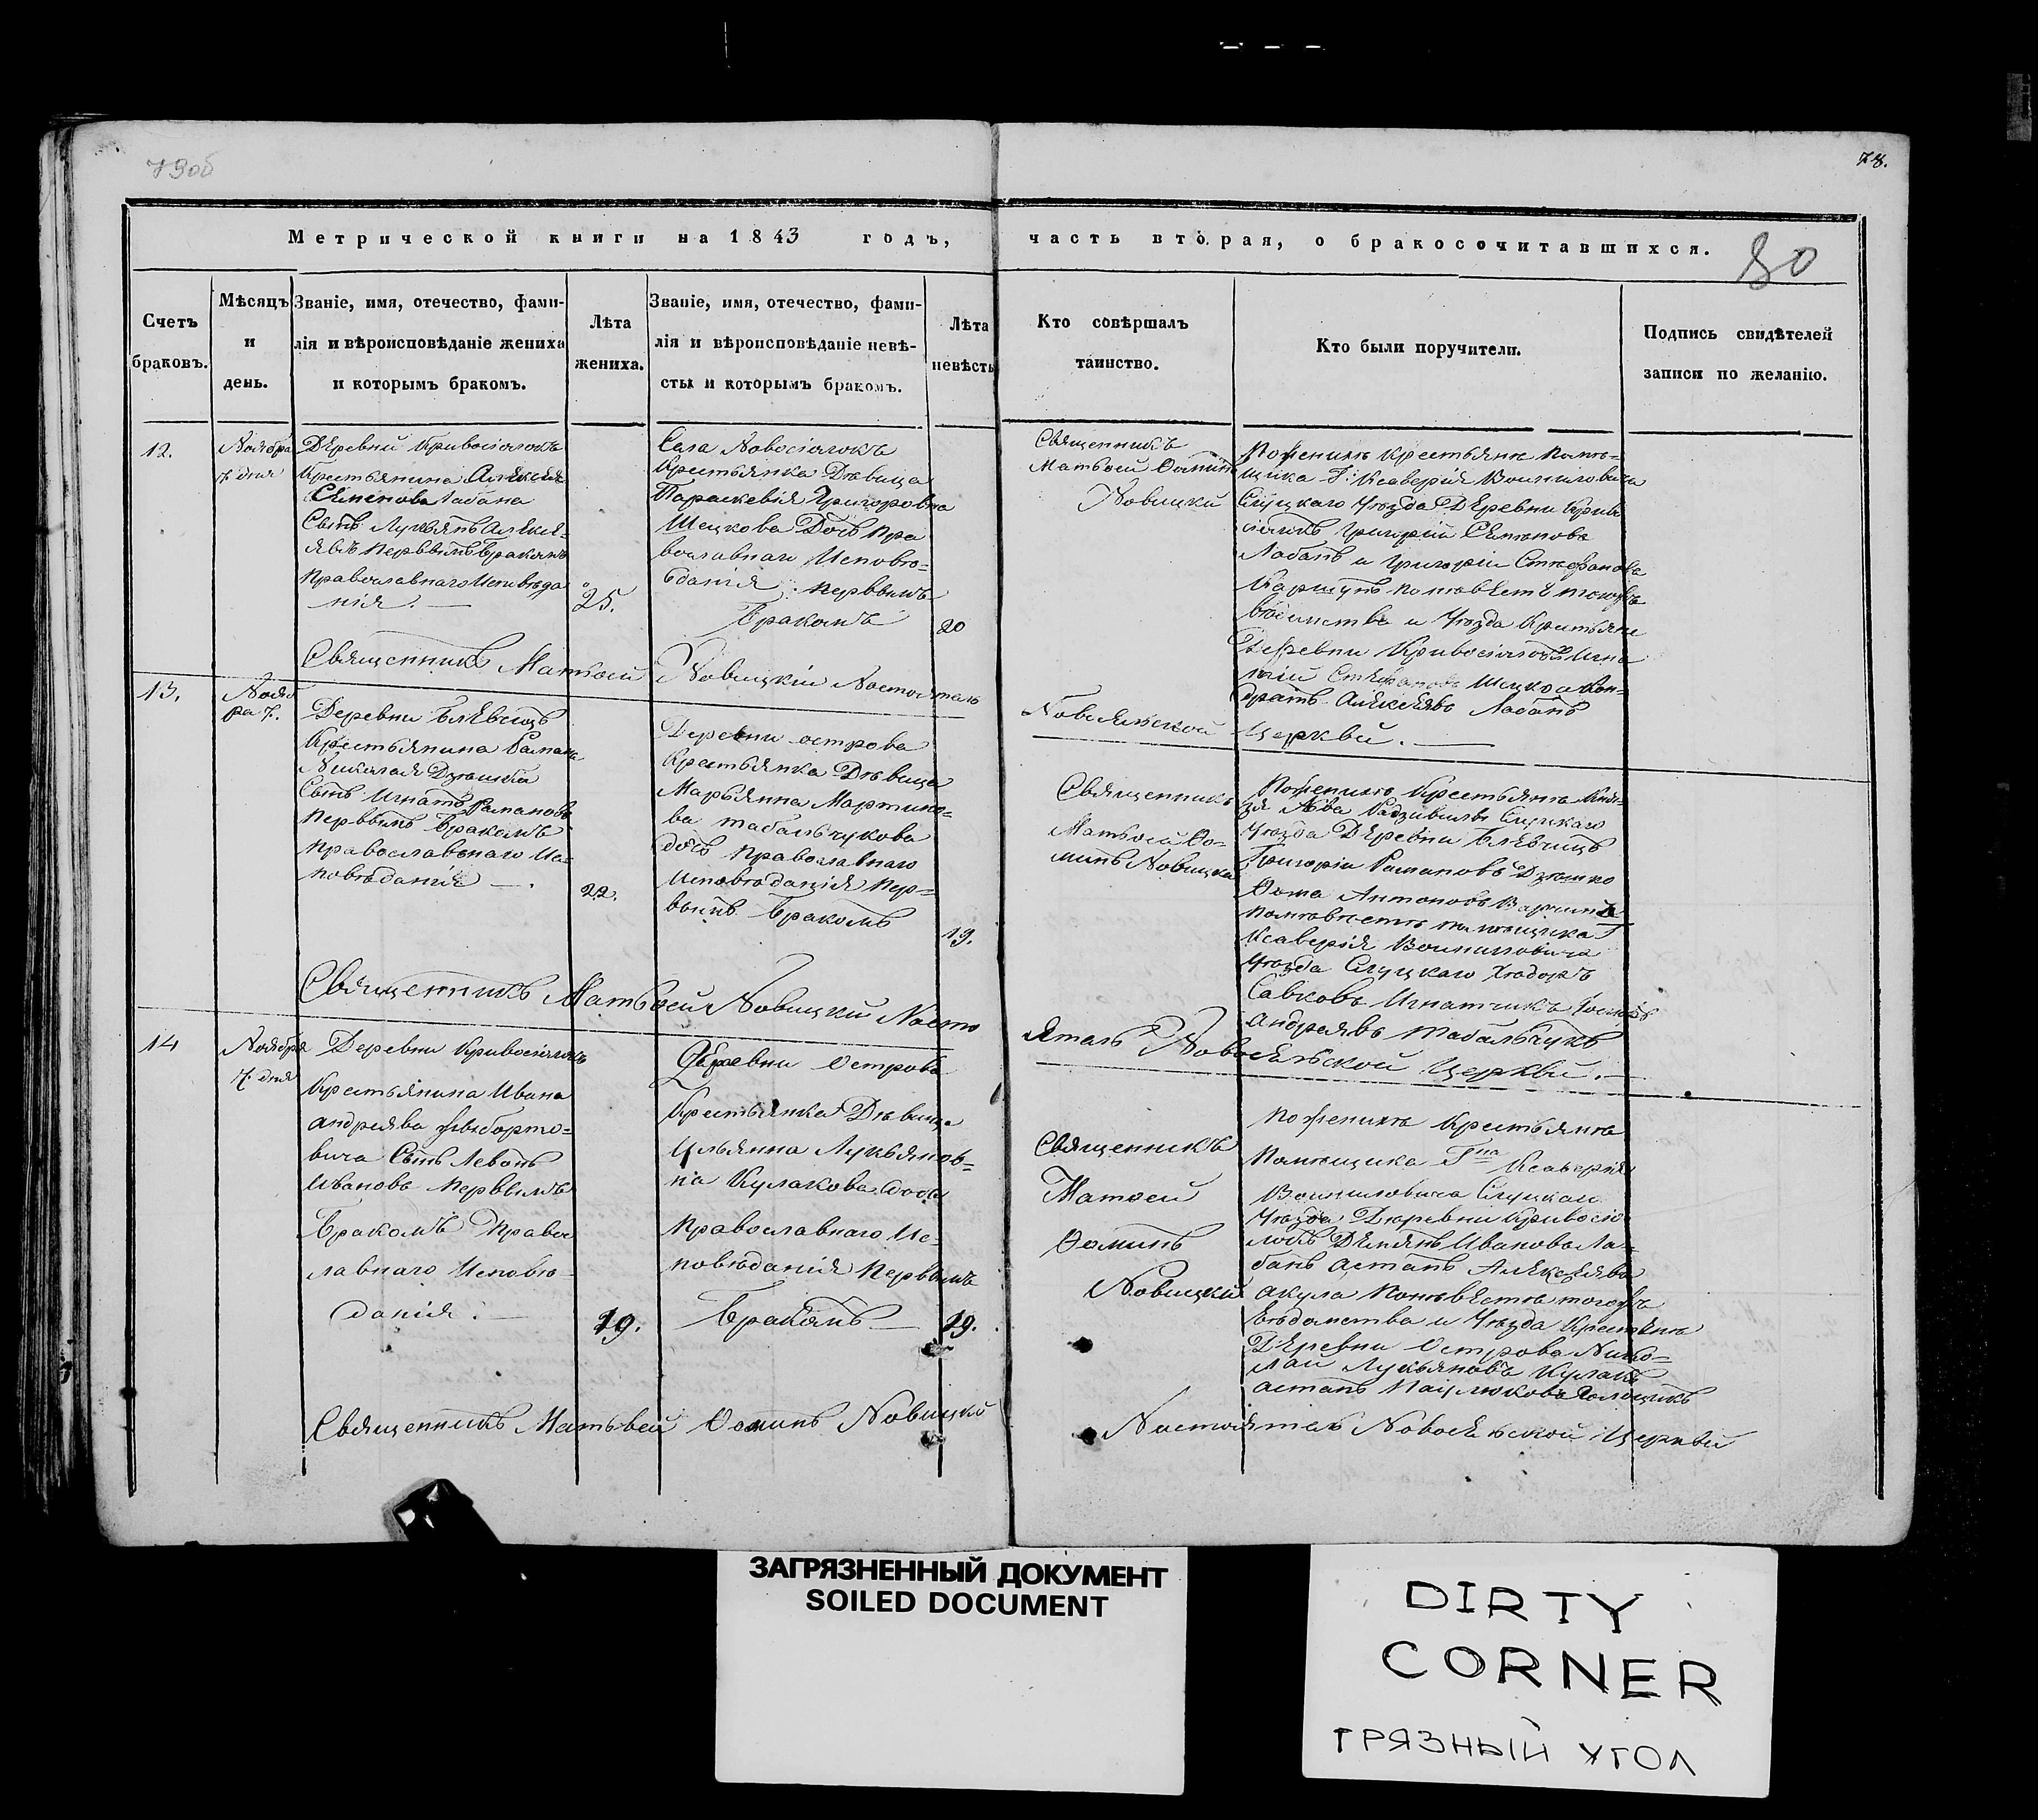 79об
78.
Метрической книги на 1843 годъ,
часть вторая, о бракосочитавшихся.
80
Счетъ
браковъ.
Мѣсяцъ
и
день.
Званіе, имя, отечество, фами-
лія и вѣроисповѣданіе жениха
и которымъ бракомъ.
Лѣта
жениха.
Званіе, имя, отечество, фами-
лія и вѣроисповѣданіе невѣ-
сты и которымъ бракомъ.
Лѣта
невѣсты
Кто совѣршалъ
таинство.
Кто были поручители.
Подпись свидѣтелей
записи по желанію.
12.
Ноября
7 дня
Деревни Кривосіолокъ
Крестьянина Алексея
Семенова Лабана
Сынъ Лукьянъ Алексе-
явъ первымъ бракомъ
православнаго Исповѣда
нія. —
25.
Села Новосіолокъ
Крестьянка Дѣвица
Параскевія Григоровна
Шецкова Дочь пра
вославнаго Исповѣ-
данія первымъ
бракомъ
20
Священникъ
Матвей Фоминъ
Новицкий
По женихѣ Крестьяне помѣ-
щика Г: Ксаверія Войниловича
Слуцкаго Уѣзда Деревни Криво
сіолокъ Григорій Семеновъ
Лабанъ и Григорій Стефановъ
по невѣстѣ тогожъ
вѣдомства и Уѣзда Крестьяне
Деревни Кривосіолокъ Игна
тій Стефановъ Шецко Кон-
дратъ Алексеявъ Лабанъ
Священникъ Матвей Новицкій Настоятель
Новосельской Церкви. —
13.
Нояб
ра 7.
Деревни Блевчицъ
Крестьянина Романа
Николая Дзюшка
Сынъ Игнатъ Романовъ
первымъ бракомъ
православнаго Ис-
повѣданія —.
22.
Деревни острова
Крестьянка Дѣвица
Марьянна Мартино-
ва табальчукова
дочь православнаго
Исповѣданія пер-
вымъ бракомъ
19.
Священникъ
Матвей Фо-
минъ Новицкій
По женихѣ Крестьяне Кня-
зя Льва Радзивилы Слуцкаго
Уѣзда Деревни Блевчицъ
Григорій Романовъ Дзюшко
Фома Антоновъ
по невѣстѣ помѣщика Г
Ксаверія Войниловича
Уѣзда Слуцкаго Хведоръ
Савковъ Игнатчикъ
андреявъ Табальчукъ
Священникъ Матвей Новицкий Насто
ятель Новосельской Церкви. —
14
Ноября
7. дня
Деревни Кривосіолокъ
Крестьянина Ивана
андреява
вича Сынъ Левонъ
Ивановъ первымъ
бракомъ Правос
лавнаго Исповѣ-
данія. —
19.
Деревни Острова
Крестьянка Дѣвица
Ульянна Лукьянов-
на Кулакова дочь
православнаго Ис-
повѣданія первымъ
бракомъ —
19.
Священникъ
Матвей
Фоминъ
Новицкий
По женихѣ Крестьяне
помѣщика Гна Ксаверія
Войниловича Слуцкаго
Уѣзда Деревни Кривосіо
локъ Демянъ Ивановъ Ла-
банъ астапъ Алексеявъ
акула по невѣстѣ тогожъ
вѣдомства и Уѣзда Крестяне
Деревни Острова Нико-
лай Лукьяновъ Кулакъ
астапъ Павлюковъ
Священникъ Матвей Фоминъ Новицкій
Настоятель Новосельской Церкви
ЗАГРЯЗНЕННЫЙ ДОКУМЕНТ
SOILED DOCUMENT
DIRTY
CORNER
ГРЯЗНЫЙ УГОЛ